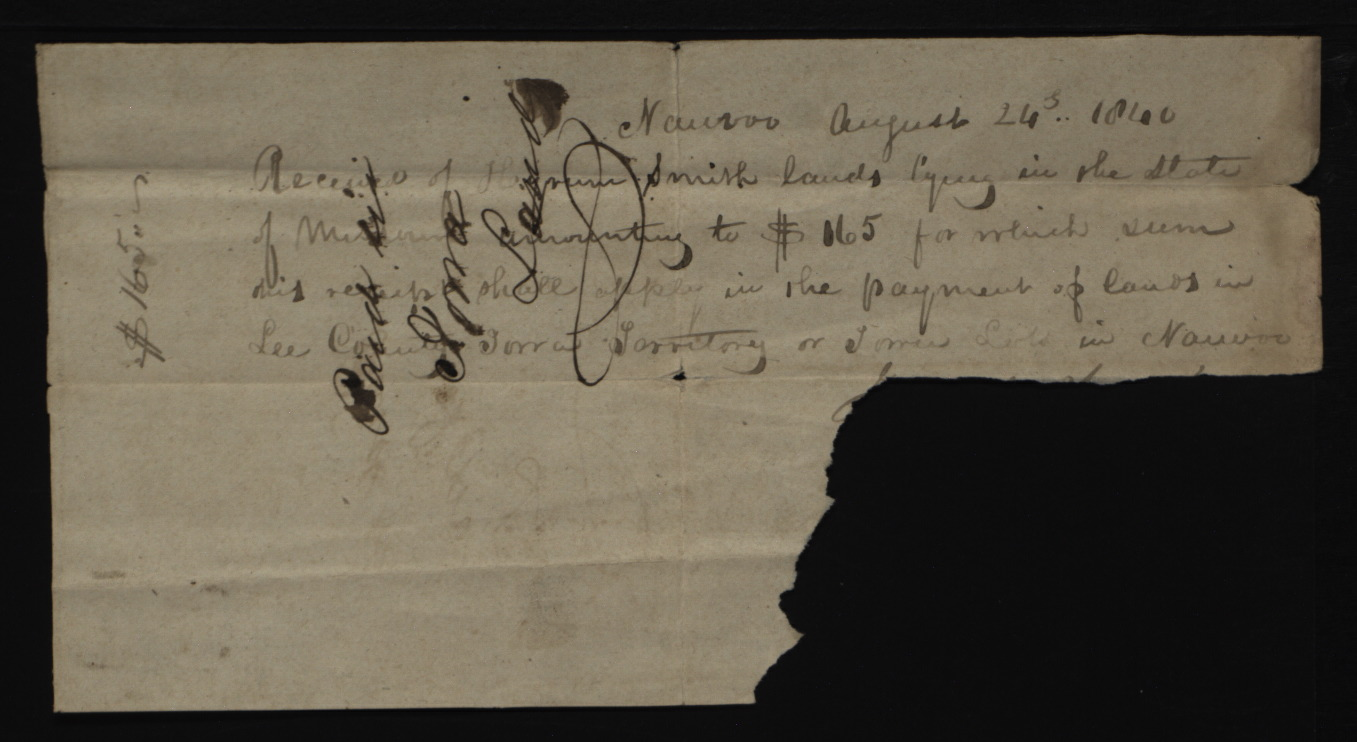 Nauvoo August 24s.. 1840
Received of Hyrum Smith lands lying in the State
of Missouri amounting to $ 165 for which sum
this receipt shall apply in the payment of lands in
Lee County Iowa Territory or Town Lots in Nauvoo
Paid in
Iowa
Land
$ 165..